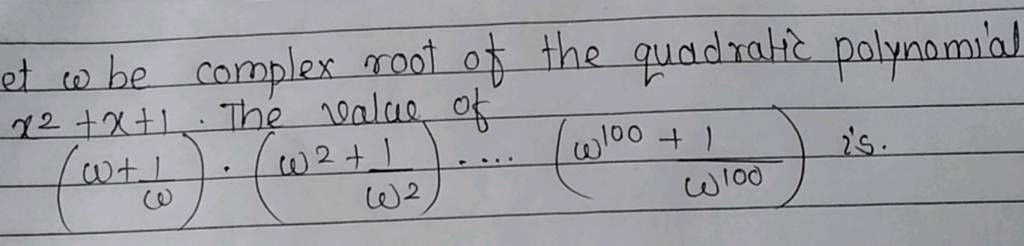 et ω be complex root of the quadratic polynomial
x2 + x + 1 . The value of
(ω + 1/ω) . (ω2 + 1/ω2) .... (ω100 + 1/ω100) is.